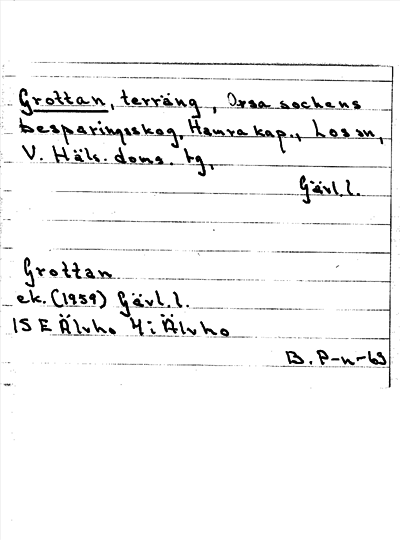 Grottan, terräng, Orsa sockens
besparingsskog, Hamra kap., Los sn,
V. Häls. doms. tg,
Gävl.l.
Grottan
ek. (1959) Gävl.l.
15 E Älvho 4 i Älvho
B. P-n-69